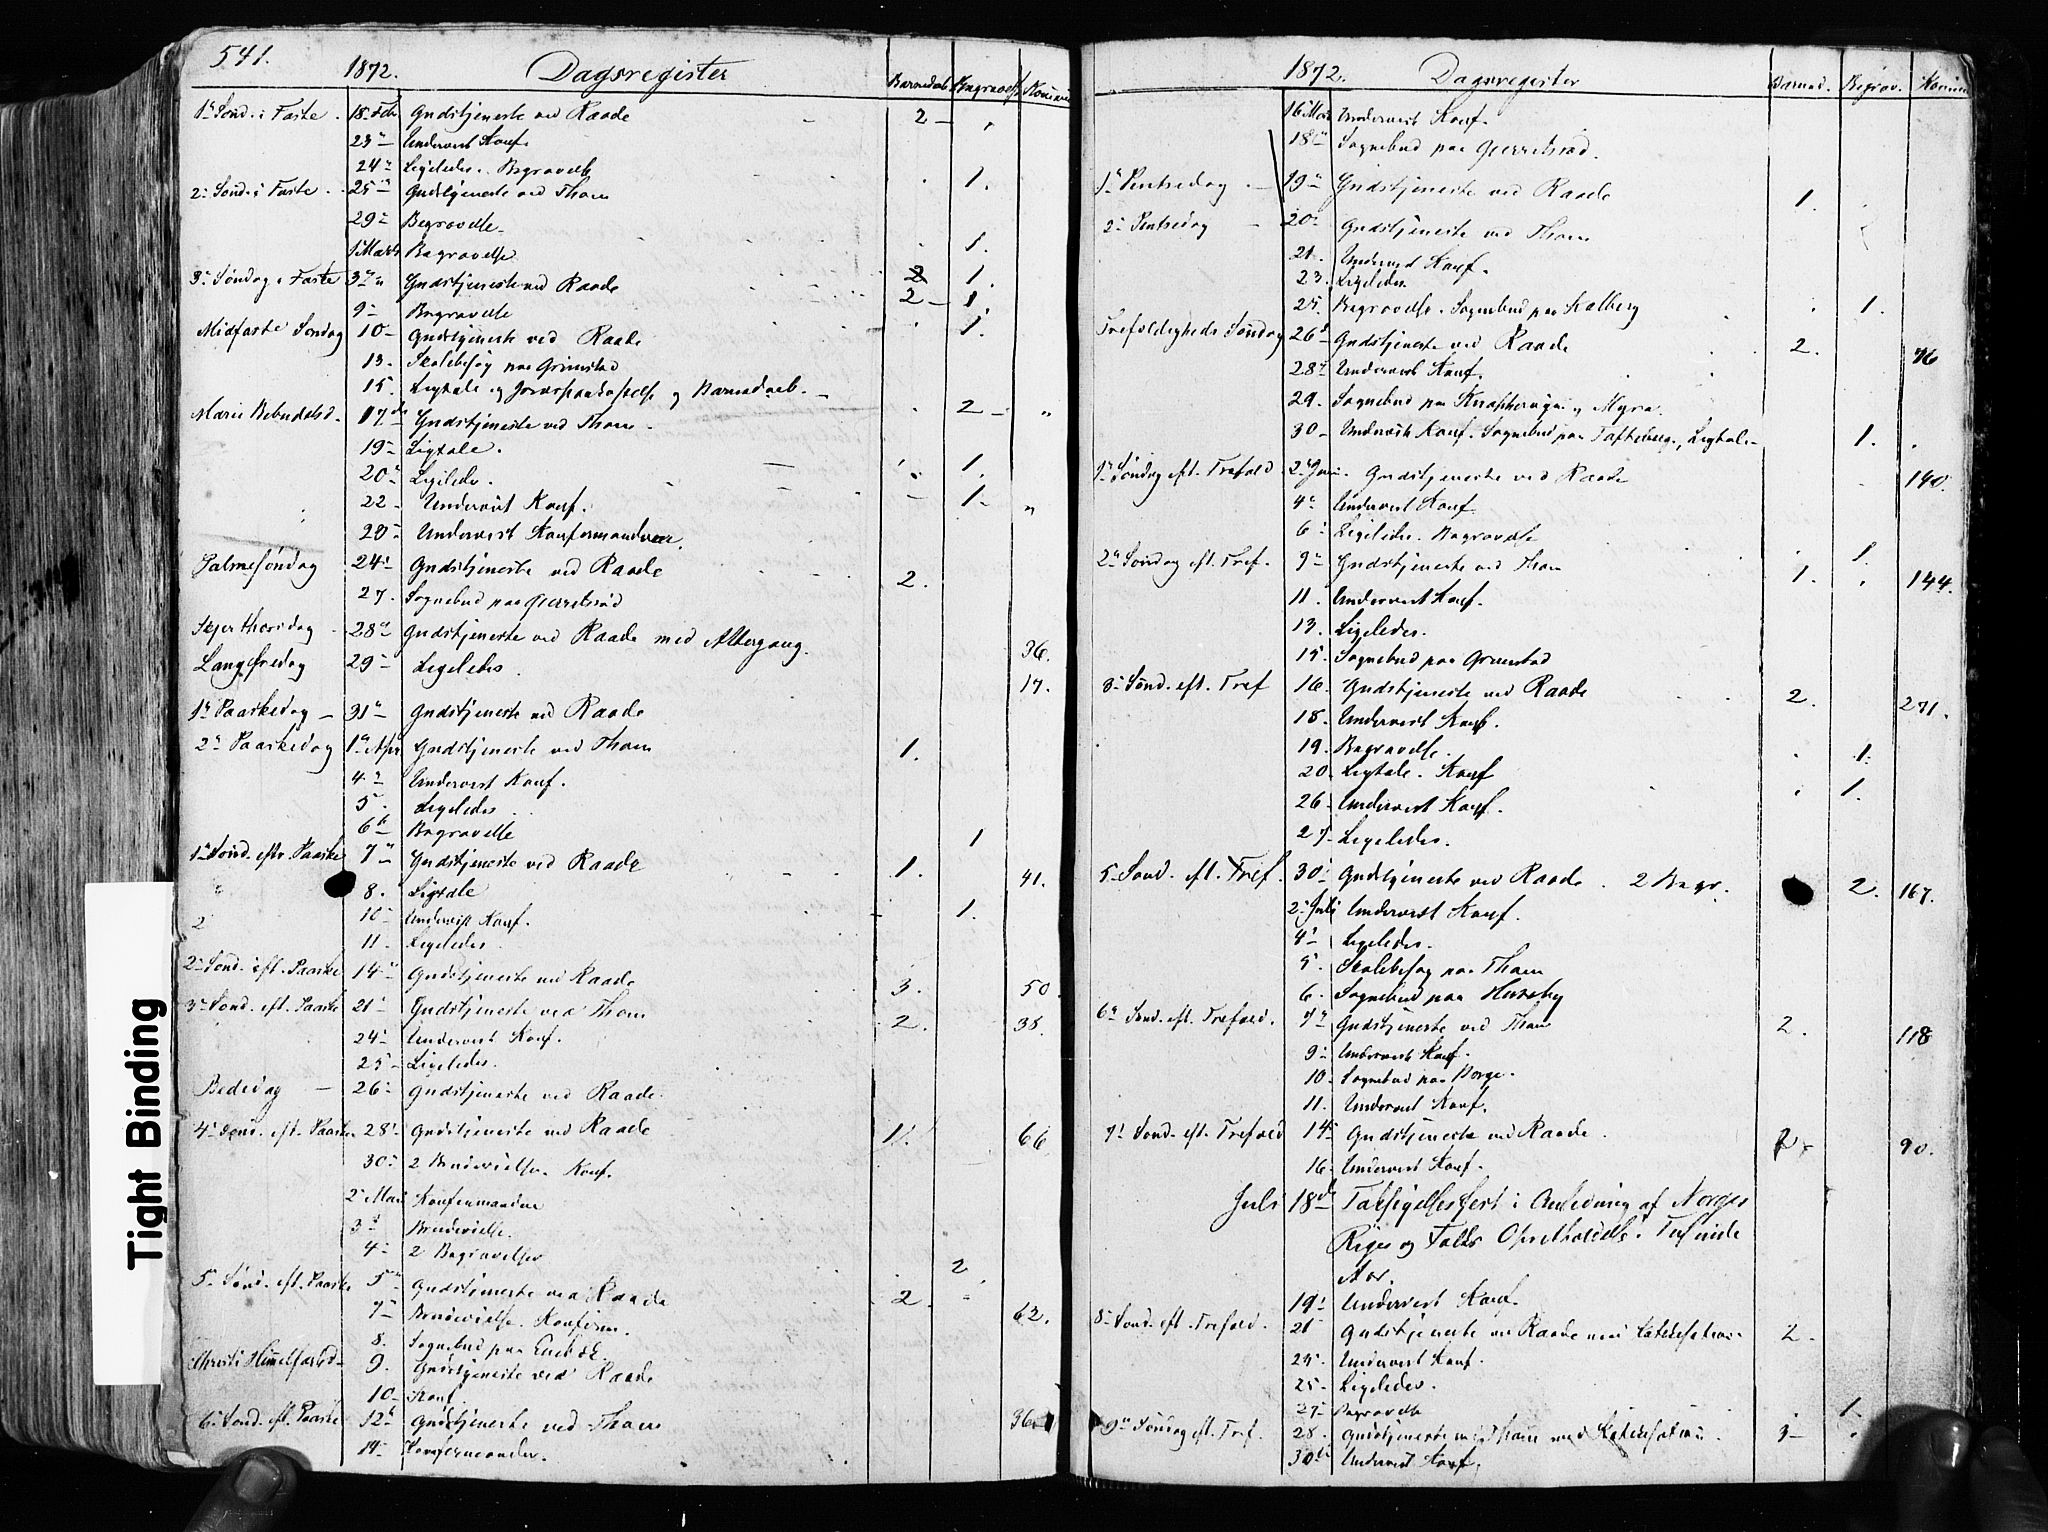 541.
1872. Dagsregister Barnedaab Begravels. Kommuni
1ste Sønd. i Faste. 18de Feb. Gudstjeneste ved Raade 2
23de Undervist Konf.
24de Ligeledes. Begravelse 1.
2den Sønd. i Faste. 25de Gudstjeneste ved Thom
29de Begravelse 1.
1 Marts Begravelse 1.
3die Søndag i Faste 3die Gudstjeneste ved Raade 2 1
9de Begravelse 1.
Midfaste Søndag 10de Gudstjeneste ved Raade
13. Skolebesøg paa Grimstad
15. Ligtale og Jordpaakastelse og Barnedaab. 2
Mariæ Bebudelsesd. 17de Gudstjeneste ved Thom.
19de Ligtale. 1.
20de Ligeledes. 1
22 Undervist Konf.
20de Undervist Konfirmanderne.
Palmesøndag 24de Gudstjeneste ved Raade 2.
27. Sognebud paa Gjerretsrød
Skjærthorsdag 28de Gudstjeneste ved Raade med Altergang. 36.
Langfredag 29de Ligeledes. 17.
1ste Paaskedag 31te Gudstjeneste ved Raade
2den Paaskedag 1ste Apr. Gudstjeneste ved Thom 1.
4de Undervist Konf.
5. Ligeledes
6te Begravelse 1
1ste Sønd. efter Paaske 7de Gudstjeneste ved Raade 1. 41.
8. Ligtale 1.
2 10de Undervist Konf.
11. Ligeledes.
2den Sønd. eft. Paaske 14de Gudstjeneste ved Raade 3. 50
3die Sønd. eft. Paaske 21de Gudstjeneste ved Thom 2. 38.
24de Undervist Konf.
25de Ligeledes.
Bededag 26de Gudstjeneste ved Raade.
4de Sønd. eft. Paaske 28de Gudstjeneste ved Raade 1. 66
30te 2 Brudevielser. Konf.
2den Mai Konfirmanderne
3die Brudevielse.
4de 2 Begravelser 2
5te Sønd. eft. Paaske 5te Gudstjeneste ved Raade 2. 62.
7de Brudevielse. Konfirm.
8. Sognebud paa
Christi Himmelfartsd. 9. Gudstjeneste ved Raade
10de Konf.
6te Sønd. eft. Paaske 12te Gudstjeneste ved Thom 36
14de Konfirmander.
1872. Dagsregister Barned. Begrav. Kommun
16 Mai Undervist Konf.
18de Sognebud paa Gjerretsrød.
1ste Pintsedag 19de Gudstjeneste ved Raade 1.
2den Pintsedag 20de Gudstjeneste ved Thom
21. Undervist Konf.
23. Ligeledes.
25. Begravelse. Sognebud paa Kalberg 1.
Trefoldigheds Søndag 26de Gudstjeneste ved Raade 2. 76
28de Undervist Konf.
29. Sognebud paa og Myra.
30 Undervist Konf. Sognebud paa Ligtale 1.
1ste Søndag eft. Trefold. 2den Juni. Gudstjeneste ved Raade 140.
4de Undervist Konf.
6te Ligeledes. Begravelse 1.
2den Søndag eft. Tref. 9de Gudstjeneste ved Thom 1. 144.
11. Undervist Konf.
13. Ligeledes.
15. Sognebud paa Grimstad
3die Sønd. eft. Tref 16. Gudstjeneste ved Raade 2. 271.
18. Undervist Konf.
19. Begravelse. 1.
20. Ligtale. Konf 1.
26 Undervist Konf.
27 Ligeledes.
5te Sønd. eft. Tref. 30te Gudstjeneste ved Raade. 2 Begr. 2. 167.
2den Juli Undervist Konf.
4de Ligeledes.
5. Skolebesøg paa Thom
6. Sognebud paa Huseby
6te Sønd. eft. Trefold. 7de Gudstjeneste ved Thom 2. 118
9de Undervist Konf.
10. Sognebud paa Borge.
11. Undervist Konf.
7de Sønd. eft. Trefold 14de Gudstjeneste ved Raade. 2 90.
16. Undervist Konf.
Juli 18de Taksigelsesfest i Anledning af Norges
Riges og Folks Opretholdelse i Tusinde
Aar.
19de Undervist Konf.
8de Sønd. eft. Trefold. 21 Gudstjeneste ved Raade med Katekisation 2.
23. Undervist Konf.
25. Ligeledes.
27 Begravelse 1.
9de Søndag eft. Tref. 28. Gudstjeneste ved Thom med Katekisation. 3
30te Undervist Konf.
Tight Binding